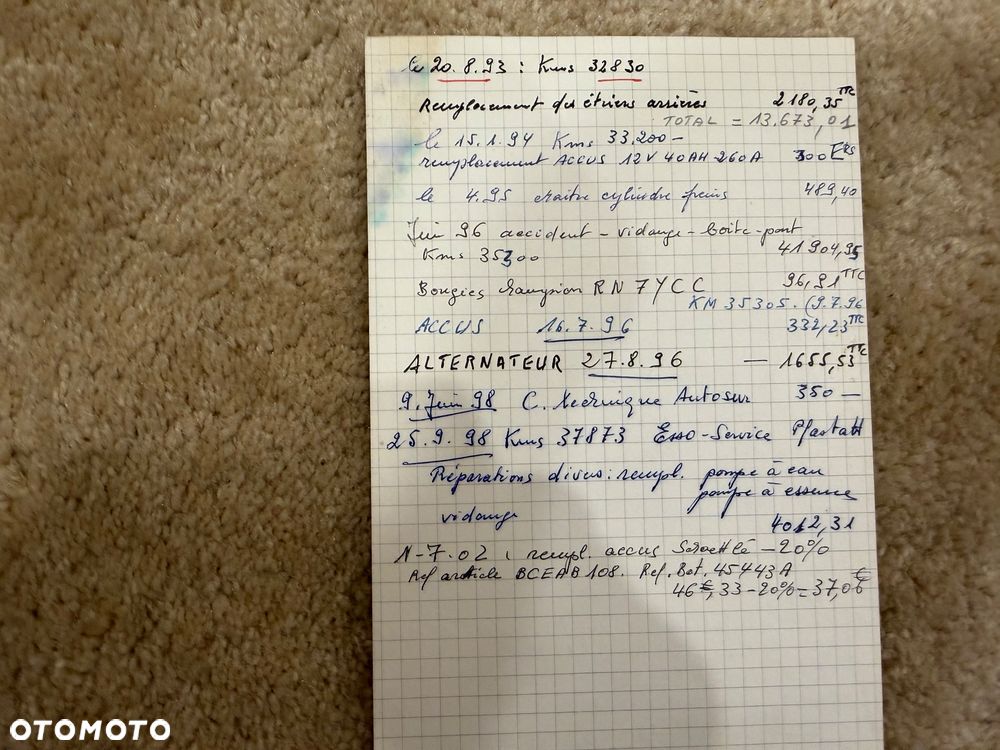 le 20.8.93 : Kms 32830
Remplacement des étriers arrières 2180,35 TTC
TOTAL = 13.673,01
le 15.1.94 Kms 33.200 -
remplacement ACCUS 12V 40AH 260A 300 Ers
le 4.95 maitre cylindre freins 489,40
Juin 96 accident - vidange - boite - pont
Kms 35300 41904,95
Bougies champion RN7YCC 96,91 TTC
KM 35305. (9.7.96
ACCUS 16.7.96 332,23 TTC
ALTERNATEUR 27.8.96 — 1655,53 TTC
9. Juin 98 C. technique Autosur 350 —
25.9.98 Kms 37873 Esso-Service Pfastatt
Réparations divers: rempl. pompe à eau
pompe à essence
vidange
4012,31
rempl. accus - 20%
Ref article BCEAB108. Ref. Bat. 45443A
46€,33 - 20% = 37,06 €
OTOMOTO